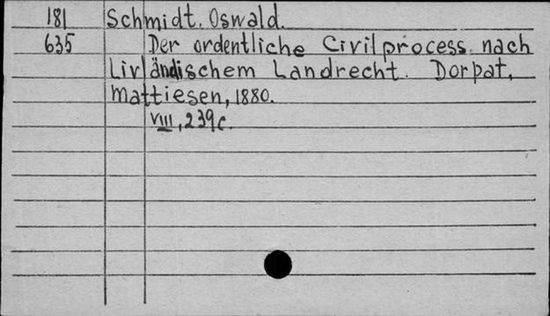 181 Schmidt, Oswald.
635 Der ordentliche Civilprocess nach
Livländischem Landrecht. Dorpat,
Mattiesen, 1880.
VIII, 239 c.